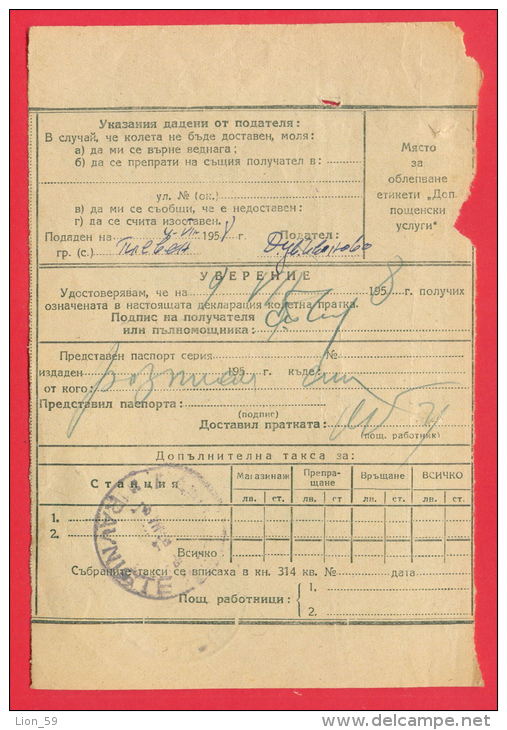 Указания дадени от подателя:
В случай, че колета не бъде доставен, моля:
а) да ми се върне веднага;
б) да се препрати на същия получател в:
ул. № (ок.)
в) да ми се съобщи, че е недоставен:
г) да се счита изоставен.
Място
за
облепване
етикети „Доп.
пощенски
услуги"
Подаден на 195 8 г. Подател:
гр. (с.) Плевен
УВЕРЕНИЕ
Удостоверявам, че на 9 VII 195 8 г. получих
означената в настоящата декларация колетна пратка.
Подпис на получателя
или пълномощника:
Представен паспорт серия №
издаден 195 г. къде:
от кого:
Представил паспорта:
(подпис)
Доставил пратката:
(пощ. работник)
Допълнителна такса за:
Станция Магазинаж Препращане Връщане ВСИЧКО
лв. ст. лв. ст лв. ст. лв. ст.
1.
2.
Всичко
Събраните такси се вписаха в кн. 314 кв. № дата
Пощ. работници: 1.
2.
Lion_59